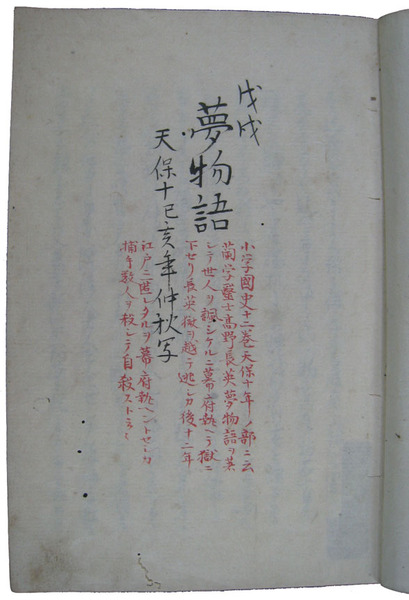 戊戌
夢物語
天保十己亥年仲秋写
小学国史十二巻天保十年ノ部ニ云
蘭学醫士高野長英夢物語ヲ著
シテ世人ヲ諷シケルニ幕府執ヘテ獄ニ
下セリ長英獄ヲ越テ逃レカ後十二年
江戸ニ匿レタルヲ幕府執ヘントセシカ
捕手数人ヲ殺シテ自殺ストアリ